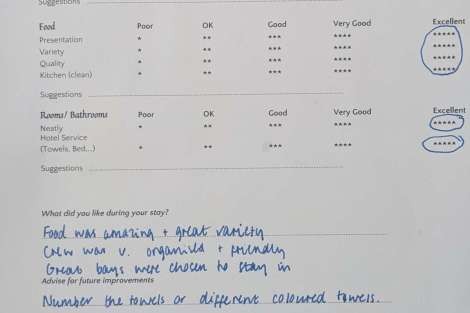 Suggestions
Food Poor OK Good Very Good Excellent
Presentation * ** *** **** *****
Variety * ** *** **** *****
Quality * ** *** **** *****
Kitchen (clean) * ** *** **** *****
Suggestions
Rooms/ Bathrooms Poor OK Good Very Good Excellent
Neatly * ** *** **** *****
Hotel Service
(Towels, Bed,..) * ** *** **** *****
Suggestions
What did you like during your stay?
Food was amazing + great variety
Crew was v. organised + friendly
Great bays were chosen to stay in
Advise for future improvements
Number the towels or different coloured towels.